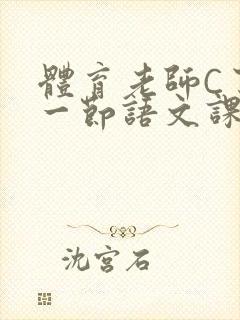 體育老師C
一節語文課
沈宮石